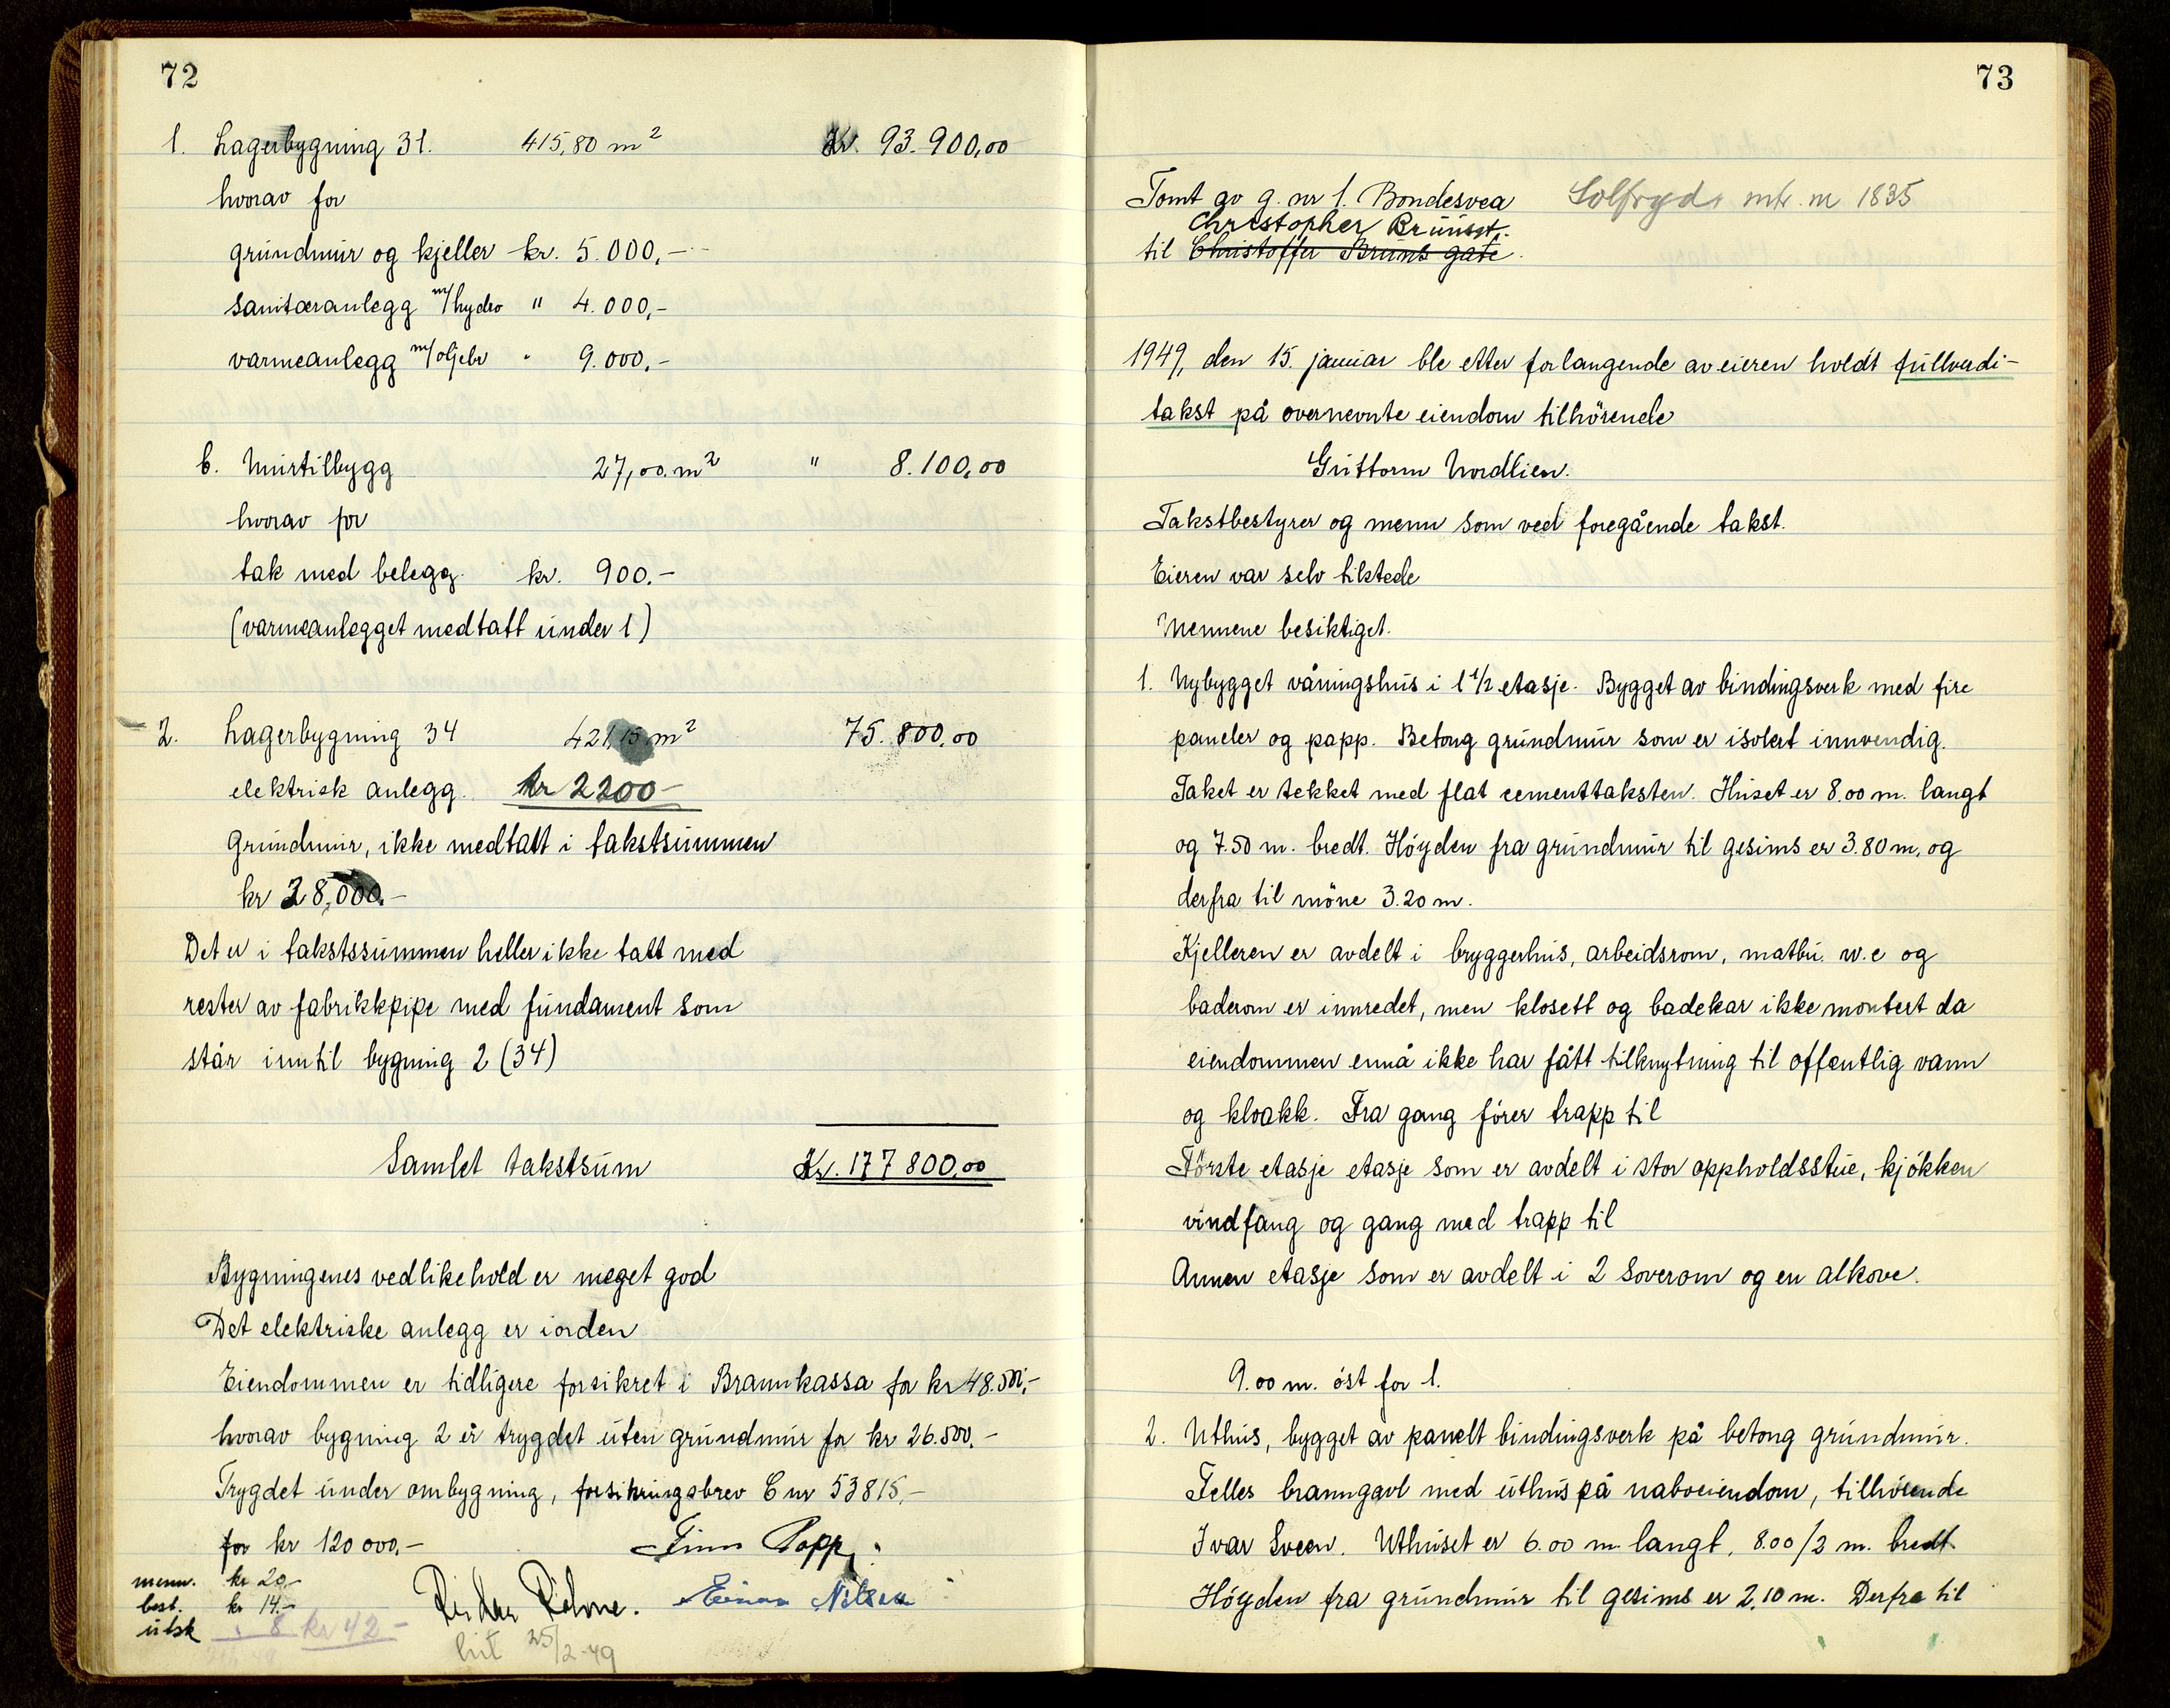 72
1. Lagerbygning 31. 415,80 m² Kr. 93.900,00
hvorav for
grundmur og kjeller kr. 5.000,-
sanitæranlegg m/hydro " 4.000,-
varmeanlegg m/oljebr " 9.000,-
b. Murtilbygg 27,00 m² " 8.100,00
hvorav for
tak med belegg. kr. 900.-
(varmeanlegget medtatt under 1)
2. Lagerbygning 34 421,15 m² 75.800,00
elektrisk anlegg. kr 2200-
Grundmur, ikke medtatt i takstsummen
kr 28,000.-
Det er i takstssummen heller ikke tatt med
rester av fabrikkpipe med fundament som
står inntil bygning 2 (34)
Samlet takstsum Kr. 177 800,00
Bygningenes vedlikehold er meget god
Det elektriske anlegg er i orden
Eiendommen er tidligere forsikret i Brannkassa for kr 48.500,-
hvorav bygning 2 er trygdet uten grundmur for kr 26.500.-
Trygdet under ombygning, forsikringsbrev C nr 53815,-
for kr 120 000,- Finn Popp
menn. kr 20,-
best. kr 14.- Einar Nilsen
utsk " 8 kr 42-
25/2-49
73
Tomt av g. nr 1. Bondesvea Solfryd, mtr. nr 1835
Christopher Brunsgt.
til Christoffer Bruns gate.
1949, den 15. januar ble etter forlangende av eieren holdt fullverdi-
takst på overnevnte eiendom tilhörende
Guttorm Nordlien.
Takstbestyrer og menn som ved foregående takst.
Eieren var selv tilstede
Mennene besiktiget.
1. Nybygget våningshus i 1 1/2 etasje. Bygget av bindingsverk med fire
paneler og papp. Betong grundmur som er isolert innvendig.
Taket er tekket med flat cementtaksten. Huset er 8.00 m. langt
og 7.50 m. bredt. Höyden fra grundmur til gesims er 3.80 m, og
derfra til möne 3.20 m.
Kjelleren er avdelt i bryggerhus, arbeidsrom, matbu. w.c og
baderom er innredet, men klosett og badekar ikke montert da
eiendommen ennå ikke har fått tilknytning til offentlig vann
og kloakk. Fra gang förer trapp til
Förste etasje etasje som er avdelt i stor oppholdsstue, kjökken
vindfang og gang med trapp til
Annen etasje som er avdelt i 2 soverom og en alkove.
9.00 m. öst for 1.
2. Uthus, bygget av panelt bindingsverk på betong grundmur.
Felles branngavl med uthus på naboeiendom, tilhörende
Ivar Sveen. Uthuset er 6.00 m langt, 8.00/2 m. bredt.
Höyden fra grundmur til gesims er 2,10 m. Derfra til